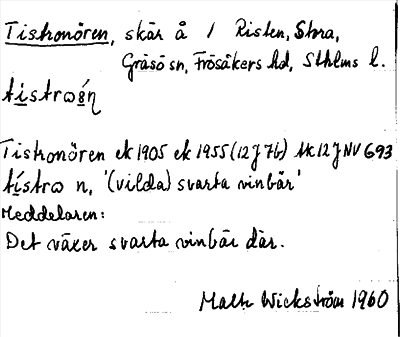 Tistronören, skär å / Risten, Stora,
Gräsö sn, Frösåkers hd, Sthlms l.
Tistronören ek 1905 ek 1955 (12J 7b) Mc 12J NV G93
n, '(vilda) svarta vinbär'
Meddelaren:
Det växer svarta vinbär där.
Mats Wickström 1960